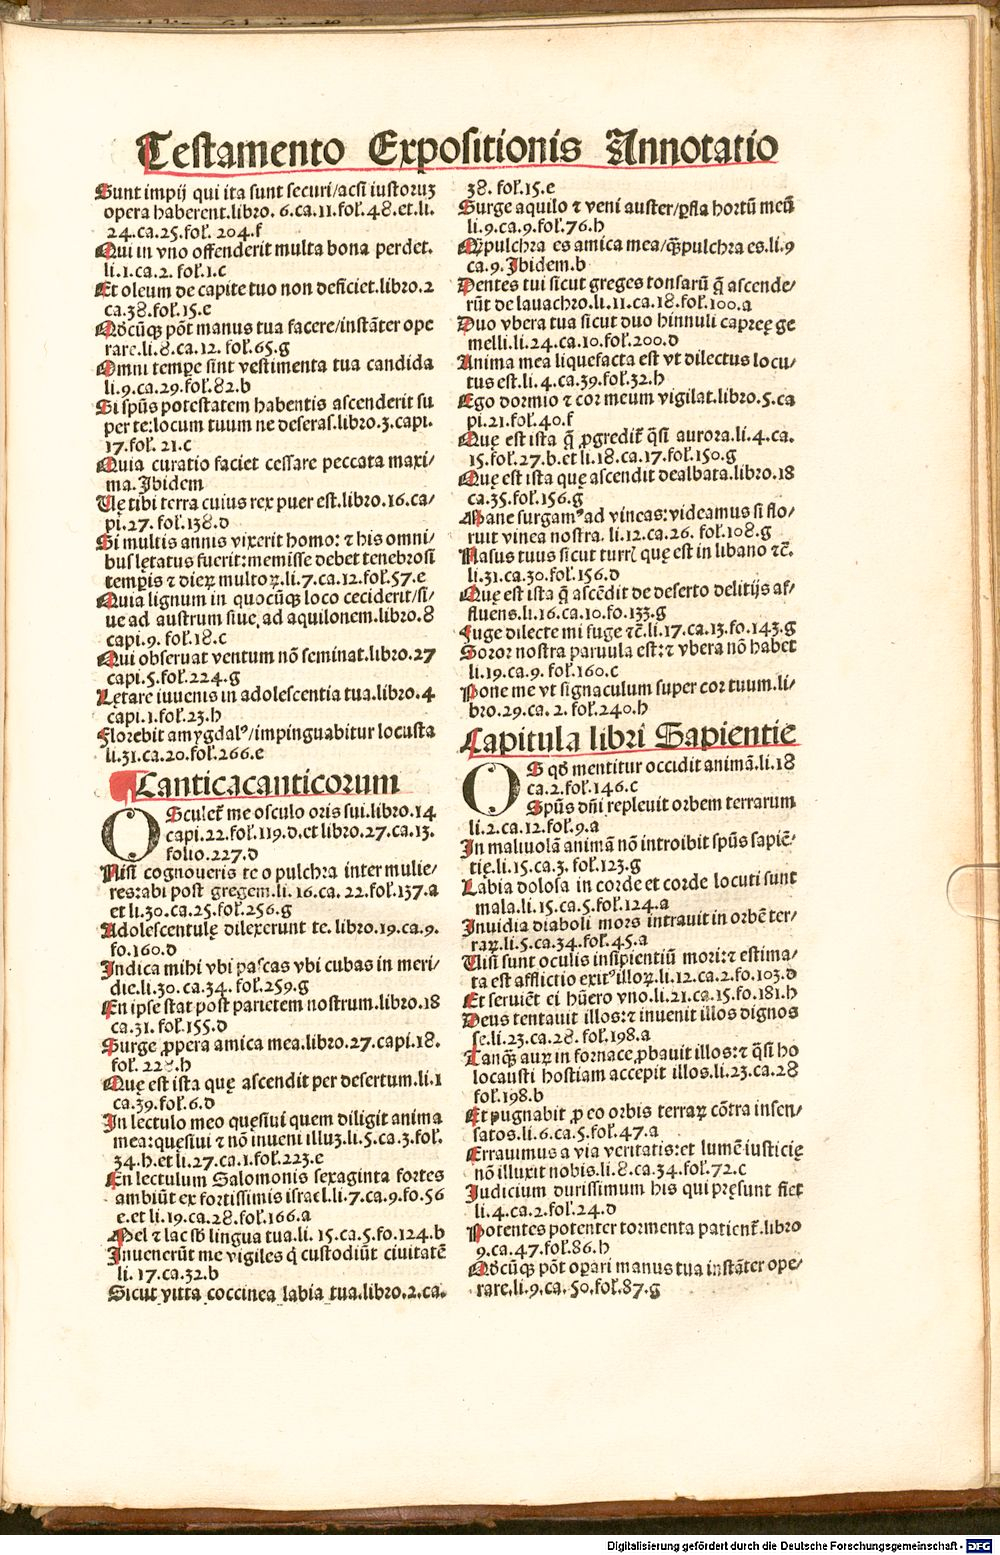 Testamento Expositionis Annotatio
Sunt impij qui ita sunt securi/acsi iustoruꝫ
opera haberent.libro. 6.ca.11.fol̄.48.et.li.
24.ca.25.fol̄. 204.f
Qui in vno offenderit multa bona perdet.
li.1.ca.2. fol̄.1.c
Et oleum de capite tuo non deficiet.libro.2
ca.38.fol̄.15.e
Qd̓cūqꝫ pōt manus tua facere/instāter ope
rare.li.8.ca.12. fol̄.65.g
Omni tempꝑe sint vestimenta tua candida
li.9.ca.29.fol̄.82.b
Si spūs potestatem habentis ascenderit su
per te:locum tuum ne deseras.libro.3.capi.
17.fol̄. 21.c
Quia curatio faciet cessare peccata maxi/
ma.Ibidem
Vę tibi terra cuius rex puer est.libro.16.ca/
pi.27. fol̄.138.d
Si multis annis vixerit homo: ⁊ his omni/
bus lętatus fuerit:memisse debet tenebrosi
temꝑis ⁊ dieꝝ multoꝝ.li.7.ca.12.fol̄.57.e
Quia lignum in quocūqꝫ loco ceciderit/si/
ue ad austrum siue ad aquilonem.libro.8
capi.9. fol̄.18.c
Qui obseruat ventum nō seminat.libro.27
capi.5.fol̄.224.g
Lętare iuuenis in adolescentia tua.libro.4
capi.1.fol̄.23.h
Florebit amygdalꝰ/impinguabitur locusta
li.31.ca.20.fol̄.266.e
Canticacanticorum
OSculet̄ me osculo oris sui.libro.14
capi.22.fol̄.119.d.et libro.27.ca.13.
folio.227.d
Nisi cognoueris te o pulchra inter mulie/
res:abi post gregem.li. 16.ca. 22.fol̄.137.a
et li.30.ca.25.fol̄.256.g
Adolescentulę dilexerunt te. libro.19.ca.9.
fo.160.d
Indica mihi vbi pascas vbi cubas in meri/
die.li.30.ca.34. fol̄.259.g
En ipse stat post parietem nostrum.libro.18
ca.31. fol̄.155.d
Surge ꝓpera amica mea.libro.27.capi.18.
fol̄. 228.h
Quę est ista quę ascendit per desertum.li.1
ca.39.fol̄.6.d
In lectulo meo quęsiui quem diligit anima
mea:quęsiui ⁊ nō inueni illuꝫ.li.5.ca.3.fol̄.
34.h.et li.27.ca.1.fol̄.223.e
En lectulum Salomonis sexaginta fortes
ambiūt ex fortissimis israel.li.7.ca.9.fo.56
e.et li.19.ca.28.fol̄.166.a
Mel ⁊ lac sb̄ lingua tua.li. 15.ca.5.fo.124.b
Inuenerūt me vigiles q̄ custodiūt ciuitatē
li. 17.ca.32.b
Sicut vitta coccinea labia tua.libro.2.ca.
38. fol̄.15.e
Surge aquilo ⁊ veni auster/ꝑfla hortū meū
li.9.ca.9.fol̄.76.h
Q̄ꝫpulchra es amica mea/q̄ꝫpulchra es.li.9
ca.9.Ibidem.b
Dentes tui sicut greges tonsarū q̄ ascende/
rūt de lauachro.li.11.ca.18.fol̄.100.a
Duo vbera tua sicut duo hinnuli capreę ge
melli.li.24.ca.10.fol̄.200.d
Anima mea liquefacta est vt dilectus locu/
tus est.li.4.ca.39.fol̄.32.h
Ego dormio ⁊ cor meum vigilat.libro.5.ca
pi.21.fol̄.40.f
Quę est ista q̄ ꝓgredit̄ q̄si aurora.li.4.ca.
15.fol̄.27.b.et li.18.ca.17.fol̄.150.g
Quę est ista quę ascendit dealbata.libro.18
ca.35.fol̄.156.g
Mane surgamꝰ ad vineas:videamus si flo/
ruit vinea nostra. li.12.ca.26. fol̄.108.g
Nasus tuus sicut turris quę est in libano ⁊c̄.
li.31.ca.30.fol̄.156.d
Quę est ista q̄ ascēdit de deserto delitijs af/
fluens.li.16.ca.10.fo.133.g
Fuge dilecte mi fuge ⁊c̄.li.17.ca.13.fo.143.g
Soror nostra paruula est:⁊ vbera nō habet
li.19.ca.9. fol̄.160.c
Pone me vt signaculum super cor tuum.li/
bro.29.ca. 2. fol̄.240.h
Capitula libri Sapientie
OS qd̓ mentitur occidit animā.li.18
ca.2.fol̄.146.c
Spūs dn̄i repleuit orbem terrarum
li.2.ca.12.fol̄.9.a
In maliuolā animā nō introibit spūs sapiē/
tię.li.15.ca.3. fol̄.123.g
Labia dolosa in corde et corde locuti sunt
mala.li.15.ca.5.fol̄.124.a
Inuidia diaboli mors intrauit in orbē ter/
raꝝ.li.5.ca.34.fol̄.45.a
Visi sunt oculis insipientiū mori:⁊ estima/
ta est afflictio exitꝰ illoꝝ.li.12.ca.2.fo.103.d
Et seruiēt ei hūero vno.li.21.ca.15.fo.181.h
Deus tentauit illos:⁊ inuenit illos dignos
se.li.23.ca.28. fol̄.198.a
Tanq̄ꝫ auꝝ in fornace ꝓbauit illos:⁊ q̄si ho
locausti hostiam accepit illos.li.23.ca.28
fol̄.198.b
Et pugnabit ꝓ eo orbis terraꝝ cōtra insen/
satos.li.6.ca.5.fol̄.47.a
Errauimus a via veritatis:et lumē iusticię
nō illuxit nobis.li.8.ca.34.fol̄.72.c
Iudicium durissimum his qui pręsunt fiet
li.4.ca.2.fol̄.24.d
Potentes potenter tormenta patient̄.libro
9.ca.47.fol̄.86.h
Qd̓cūqꝫ pōt opari manus tua instāter ope/
rare.li.9.ca.50.fol̄.87.g
Digitalisierung gefördert durch die Deutsche Forschungsgemeinschaft - DFG